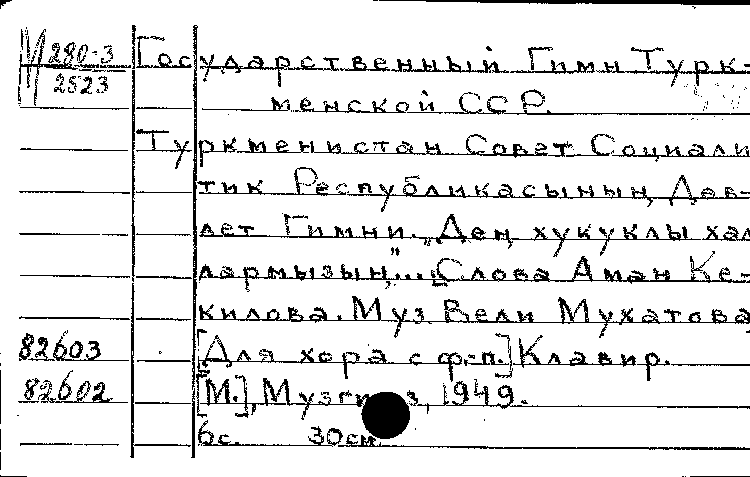 М 280-3 Государственный Гимн Турк-
2523
менской ССР.
Туркменистан Совет Социали
тик Республикасының Дөв-
лет Гимни. „Дең хукуклы хал
лармызың"... Слова Аман Ке-
килова. Муз. Вели Мухатова
82603 [Для хора с ф.-п.] Клавир.
82602 [М.], Музгиз, 1949.
6с. 30см.